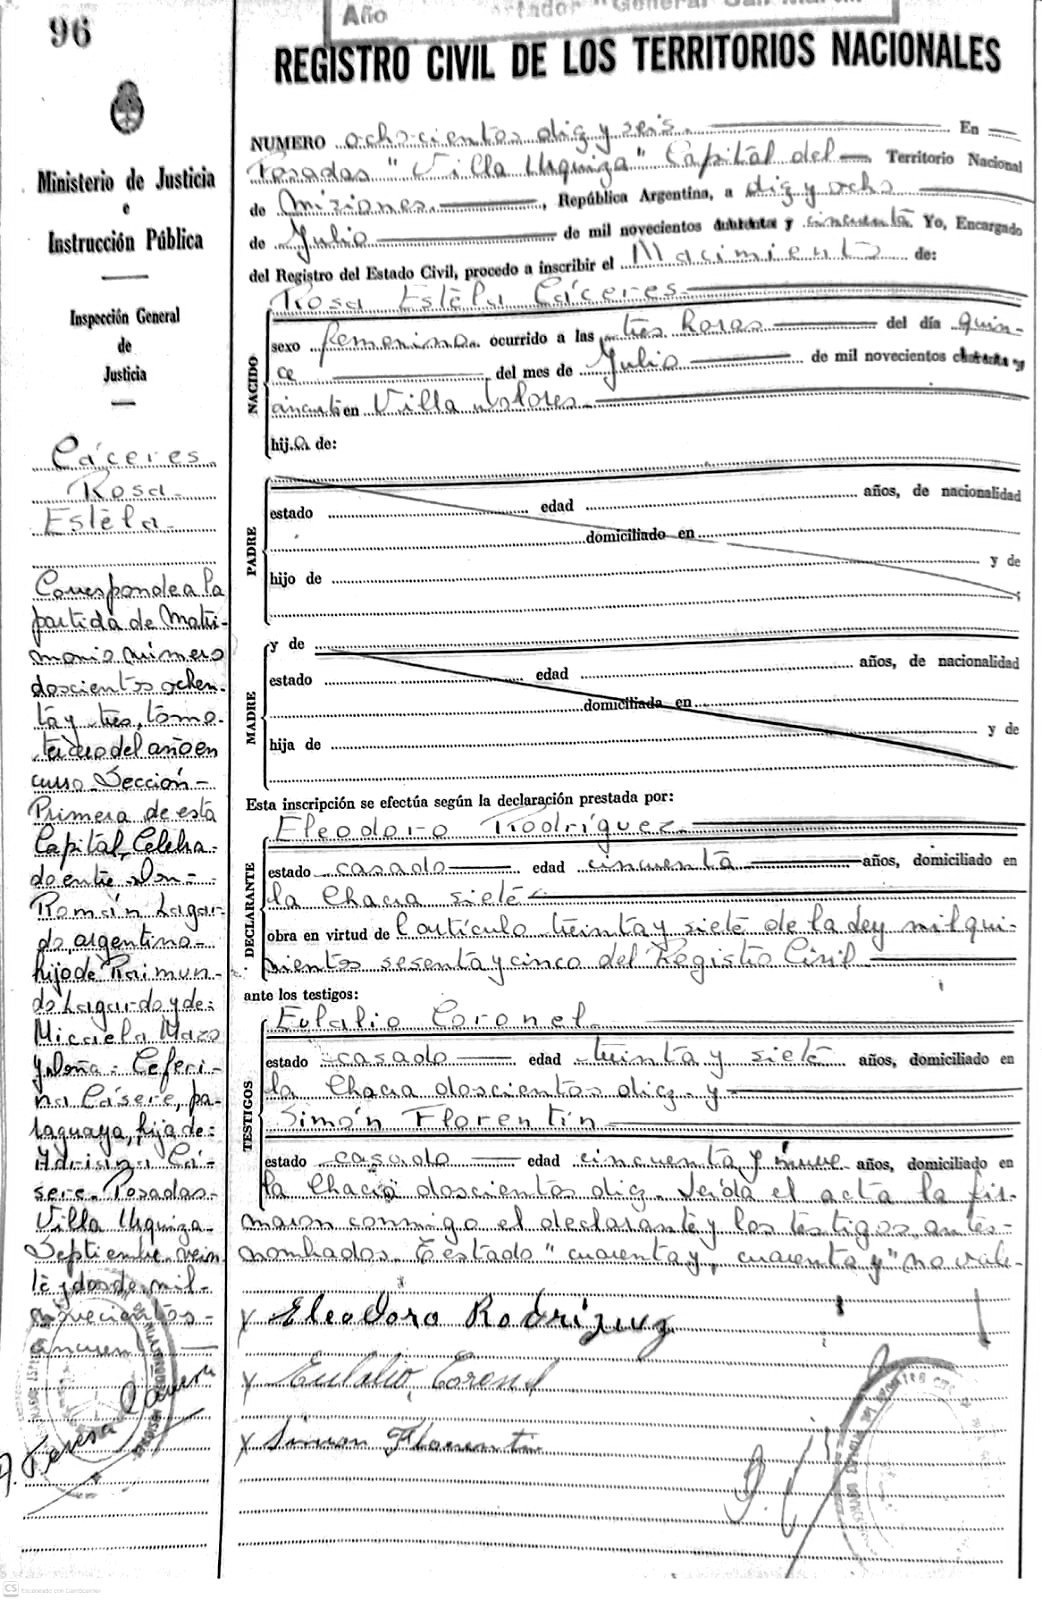 96
Año
REGISTRO CIVIL DE LOS TERRITORIOS NACIONALES
Ministerio de Justicia
e
Instrucción Pública
Inspección General
de
Justicia
Cáceres
Rosa
Estèla
Corresponde a la
partida de Matri-
monio número
doscientos ochen-
ta y tres, tomo
tercero del año en
curso Sección-
Primera de esta
Capital, Celebra-
do entre Don-
Román Lagar-
do, argentino-
hijo de Raimun-
do Lagardo y de:
Micaela Mazo
y doña: Ceferi-
na Cásere, pa-
raguaya, hija de:
Adrisiza Cá-
sere- Posadas-
Villa Urquiza-
Septiembre vein
te y dos de mil-
novecientos-
cincuen
NUMERO ochocientos diez y seis. En
Posadas "Villa Urquiza" Capital del Territorio Nacional
de Misiones, República Argentina, a diez y ocho
de Julio de mil novecientos y cincuenta Yo, Encargado
del Registro del Estado Civil, procedo a inscribir el Nacimiento de:
NACIDO
Rosa Estèla Cáceres
sexo femenino ocurrido a las tres horas del día quin-
ce, del mes de Julio de mil novecientos
cincuenta en Villa Dolores
hij.a de:
PADRE
estado edad años, de nacionalidad
domiciliado en
hijo de y de
MADRE
y de
estado edad años, de nacionalidad
domiciliada en
hija de y de
Esta inscripción se efectúa según la declaración prestada por:
DECLARANTE
Eleodoro Rodríguez
estado casado edad cincuenta años, domiciliado en
la Chacra siete
obra en virtud de l artículo treinta y siete de la Ley mil qui-
nientos sesenta y cinco del Registro Civil
ante los testigos:
TESTIGOS
Eulalio Coronel
estado casado edad treinta y siete años, domiciliado en
la Chacra doscientos diez y
Simón Florentín
estado casado edad cincuenta y nueve años, domiciliado en
la Chacra doscientos diez. Leída el acta la fir-
maron conmigo el declarante y los testigos antes-
nombrados. Testado "cuarenta y, cuarenta y" no vale-
x Eleodoro Rodriguez
x Eulalio, Coronel
x Simon Florentin
CS Escaneado con CamScanner